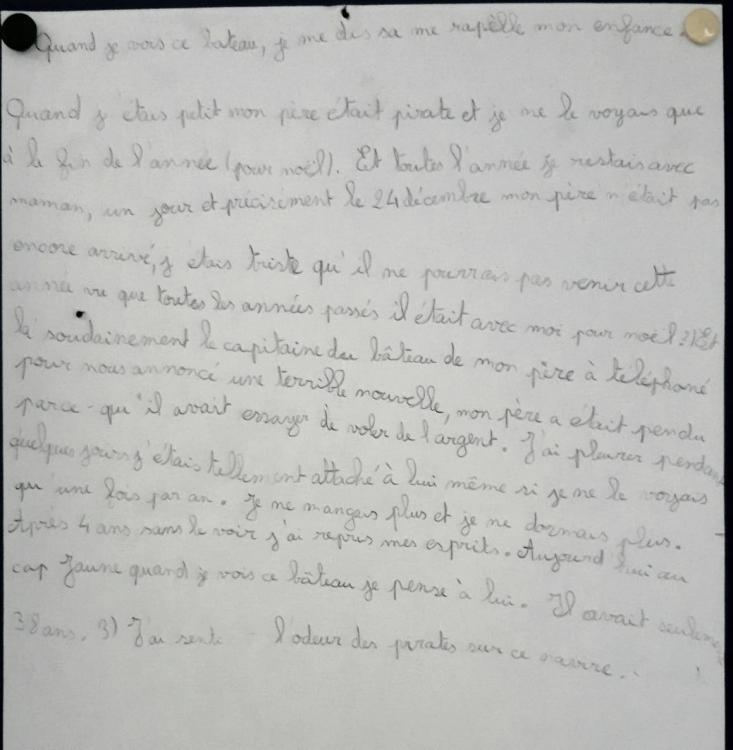 Quand je vois ce bateau, je me dis sa me rapèlle mon enfance.
Quand j étais petit mon père était pirate et je ne le voyais que
à la fin de l'année (pour noël). Et toutes l'année je restais avec
maman, un jour et précisément le 24 décembre mon père n'était pas
encore arrivé, j étais triste qu'il ne pourrais pas venir cette
année vu que toutes les années passés il était avec moi pour noël? Et
là soudainement le capitaine du bâteau de mon père à téléphoné
pour nous annoncé une terrible nouvelle, mon père a était pendu
parce-qu'il avait essayer de voler de l'argent. J'ai pleurer pendant
quelques jours j'étais tellement attaché à lui même si je ne le voyais
qu'une fois par an. Je ne mangais plus et je ne dormais plus.
Après 4 ans sans le voir j'ai repris mes esprits. Aujourd hui au
cap Jaune quand je vois ce bâteau je pense à lui. Il avait seulement
38 ans. 3) J'ai l'odeur des pirates sur ce navire.